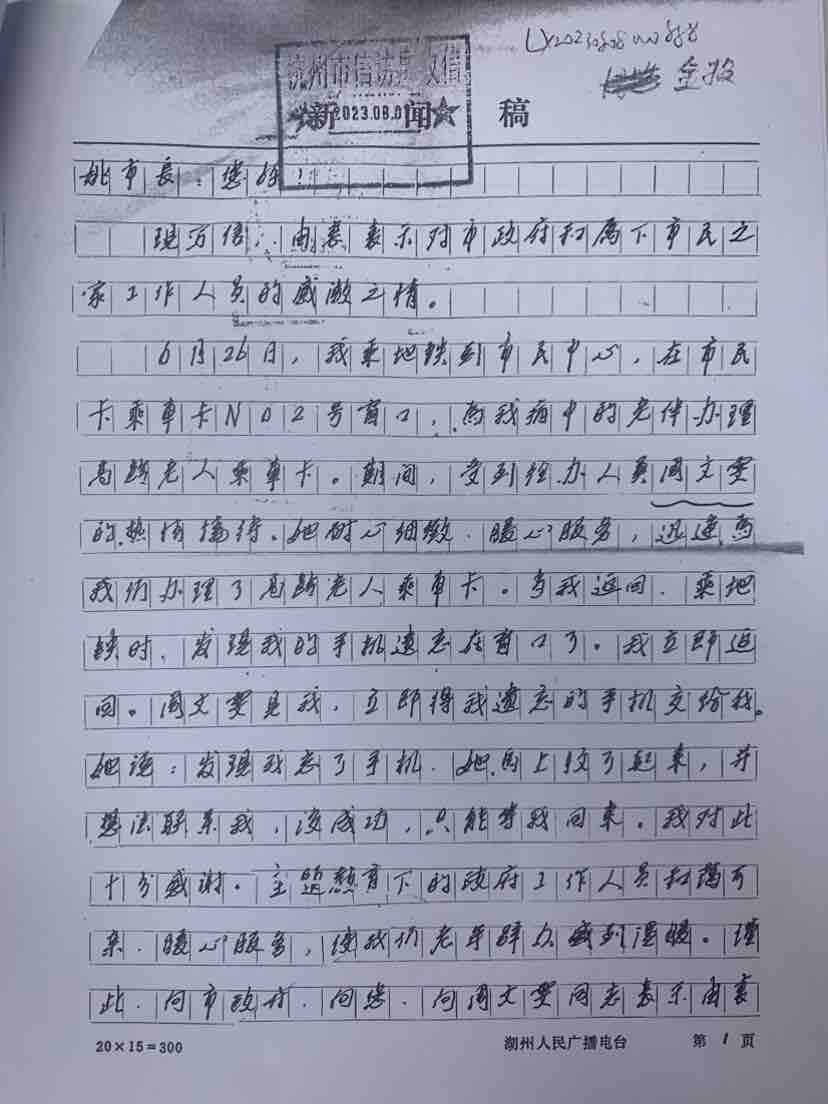 杭州市信访局 收信
2023.08.0
新闻稿
姚市长：您好！
现万信：由衷表示对市政府和属下市民之
家工作人员的感激之情。
6月26日，我乘地铁到市民中心，在市民
卡乘車卡NO2号窗口，为我病中的老伴办理
高龄老人乘車卡。期间，受到经办人员周文雯
的热情接待。她耐心细致、暖心服务，迅速为
我们办理了高龄老人乘車卡。当我返回、乘地
铁时、发现我的手机遗忘在窗口了。我立即返
回。周文雯见我，立即将我遗忘的手机交给我。
她说：发现我忘了手机、她马上收了起来，并
想法联系我，没成功，只能等我回来。我对此
十分感谢。主 下的政府工作人员和蔼可
亲、暖心服务，使我们老年群众感到温暖。谨
此、向市政府、向您、向周文雯同志表示由衷
20×15=300
湖州人民广播电台
第1页